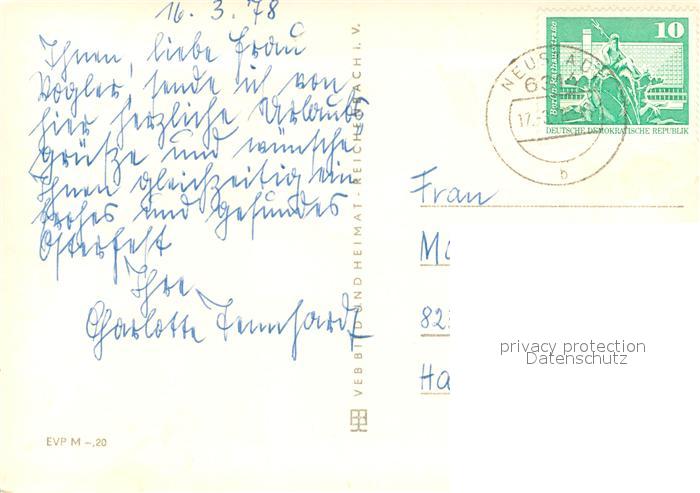 16. 3. 78
Ihnen, liebe Frau
Vogler, sende ich von
hier herzliche Urlaubs
grüße und wünsche
Ihnen gleichzeitig ein
frohes und gesundes
Osterfest
Ihre
Charlotte
VEB BILD UND HEIMAT · REICHENBACH I. V.
EVP M –,20
10
Berlin Rathausstraße
DEUTSCHE DEMOKRATISCHE REPUBLIK
17.
b
Frau
82
Ha
privacy protection
Datenschutz